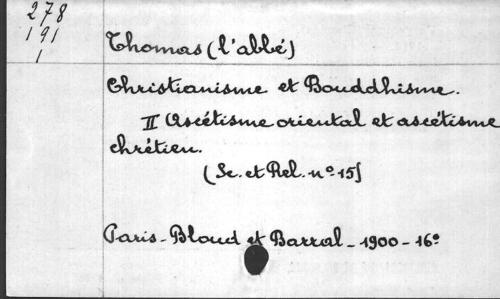 278
191
1
Thomas (l'abbé)
Christianisme et Bouddhisme.
II Ascétisme oriental et ascétisme
chrétien.
(Sc. et Rel. nº 15)
Paris - Bloud et Barral - 1900 - 16º